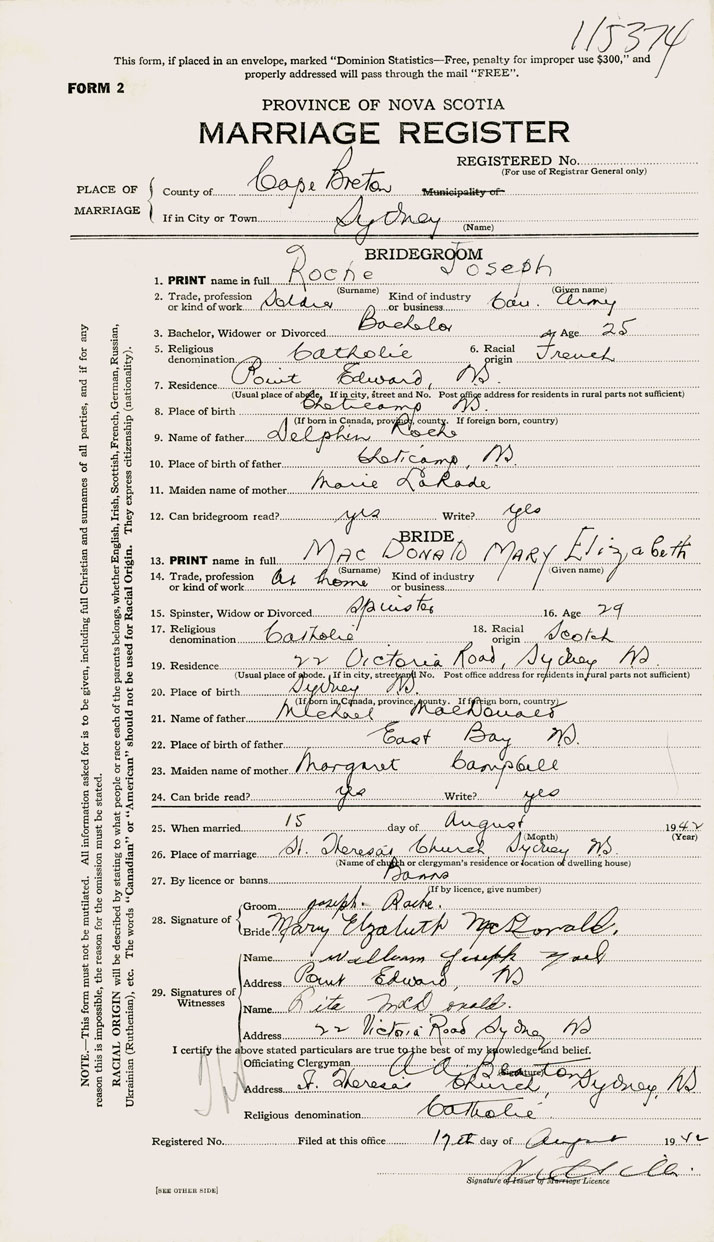 115374
This form, if placed in an envelope, marked "Dominion Statistics—Free, penalty for improper use $300," and
properly addressed will pass through the mail "FREE".
FORM 2
PROVINCE OF NOVA SCOTIA
MARRIAGE REGISTER
REGISTERED No.
(For use of Registrar General only)
PLACE OF MARRIAGE
County of Cape Breton Municipality of
If in City or Town Sydney
(Name)
BRIDEGROOM
1. PRINT name in full Roche Joseph
(Surname) (Given name)
2. Trade, profession or kind of work Soldier Kind of industry or business Can. Army
3. Bachelor, Widower or Divorced Bachelor 4. Age 25
5. Religious denomination Catholic 6. Racial origin French
7. Residence Point Edward, NS.
(Usual place of abode. If in city, street and No. Post office address for residents in rural parts not sufficient)
8. Place of birth Cheticamp NS.
(If born in Canada, province, county. If foreign born, country)
9. Name of father Delphin Roche
10. Place of birth of father Cheticamp, NS.
11. Maiden name of mother Marie LaRade
12. Can bridegroom read? yes Write? yes
BRIDE
13. PRINT name in full MAC DONALD MARY Elizabeth
(Surname) (Given name)
14. Trade, profession or kind of work At home Kind of industry or business
15. Spinster, Widow or Divorced Spinster 16. Age 29
17. Religious denomination Catholic 18. Racial origin Scotch
19. Residence 22 Victoria Road, Sydney NS.
(Usual place of abode. If in city, street and No. Post office address for residents in rural parts not sufficient)
20. Place of birth Sydney NS.
(If born in Canada, province, county. If foreign born, country)
21. Name of father Michael MacDonald
22. Place of birth of father East Bay NS.
23. Maiden name of mother Margaret Campbell
24. Can bride read? yes Write? yes
25. When married 15 day of August 1942
(Month) (Year)
26. Place of marriage St. Theresa's Church Sydney NS.
(Name of church or clergyman's residence or location of dwelling house)
27. By licence or banns Banns
(If by licence, give number)
28. Signature of
Groom Joseph Roche.
Bride Mary Elizabeth McDonald.
29. Signatures of Witnesses
Name William Joseph
Address Point Edward, NS
Name Rita McDonald.
Address 22 Victoria Road Sydney NS
I certify the above stated particulars are true to the best of my knowledge and belief.
Officiating Clergyman A. A. Beaton
(Signature)
Address St. Theresa's Church, Sydney, NS
Religious denomination Catholic
Registered No. Filed at this office 17th day of August 1942
Signature of Issuer of Marriage Licence
[SEE OTHER SIDE]
NOTE.—This form must not be mutilated. All information asked for is to be given, including full Christian and surnames of all parties, and if for any
reason this is impossible, the reason for the omission must be stated.
RACIAL ORIGIN will be described by stating to what people or race each of the parents belongs, whether English, Irish, Scottish, French, German, Russian,
Ukrainian (Ruthenian), etc. The words "Canadian" or "American" should not be used for Racial Origin. They express citizenship (nationality).